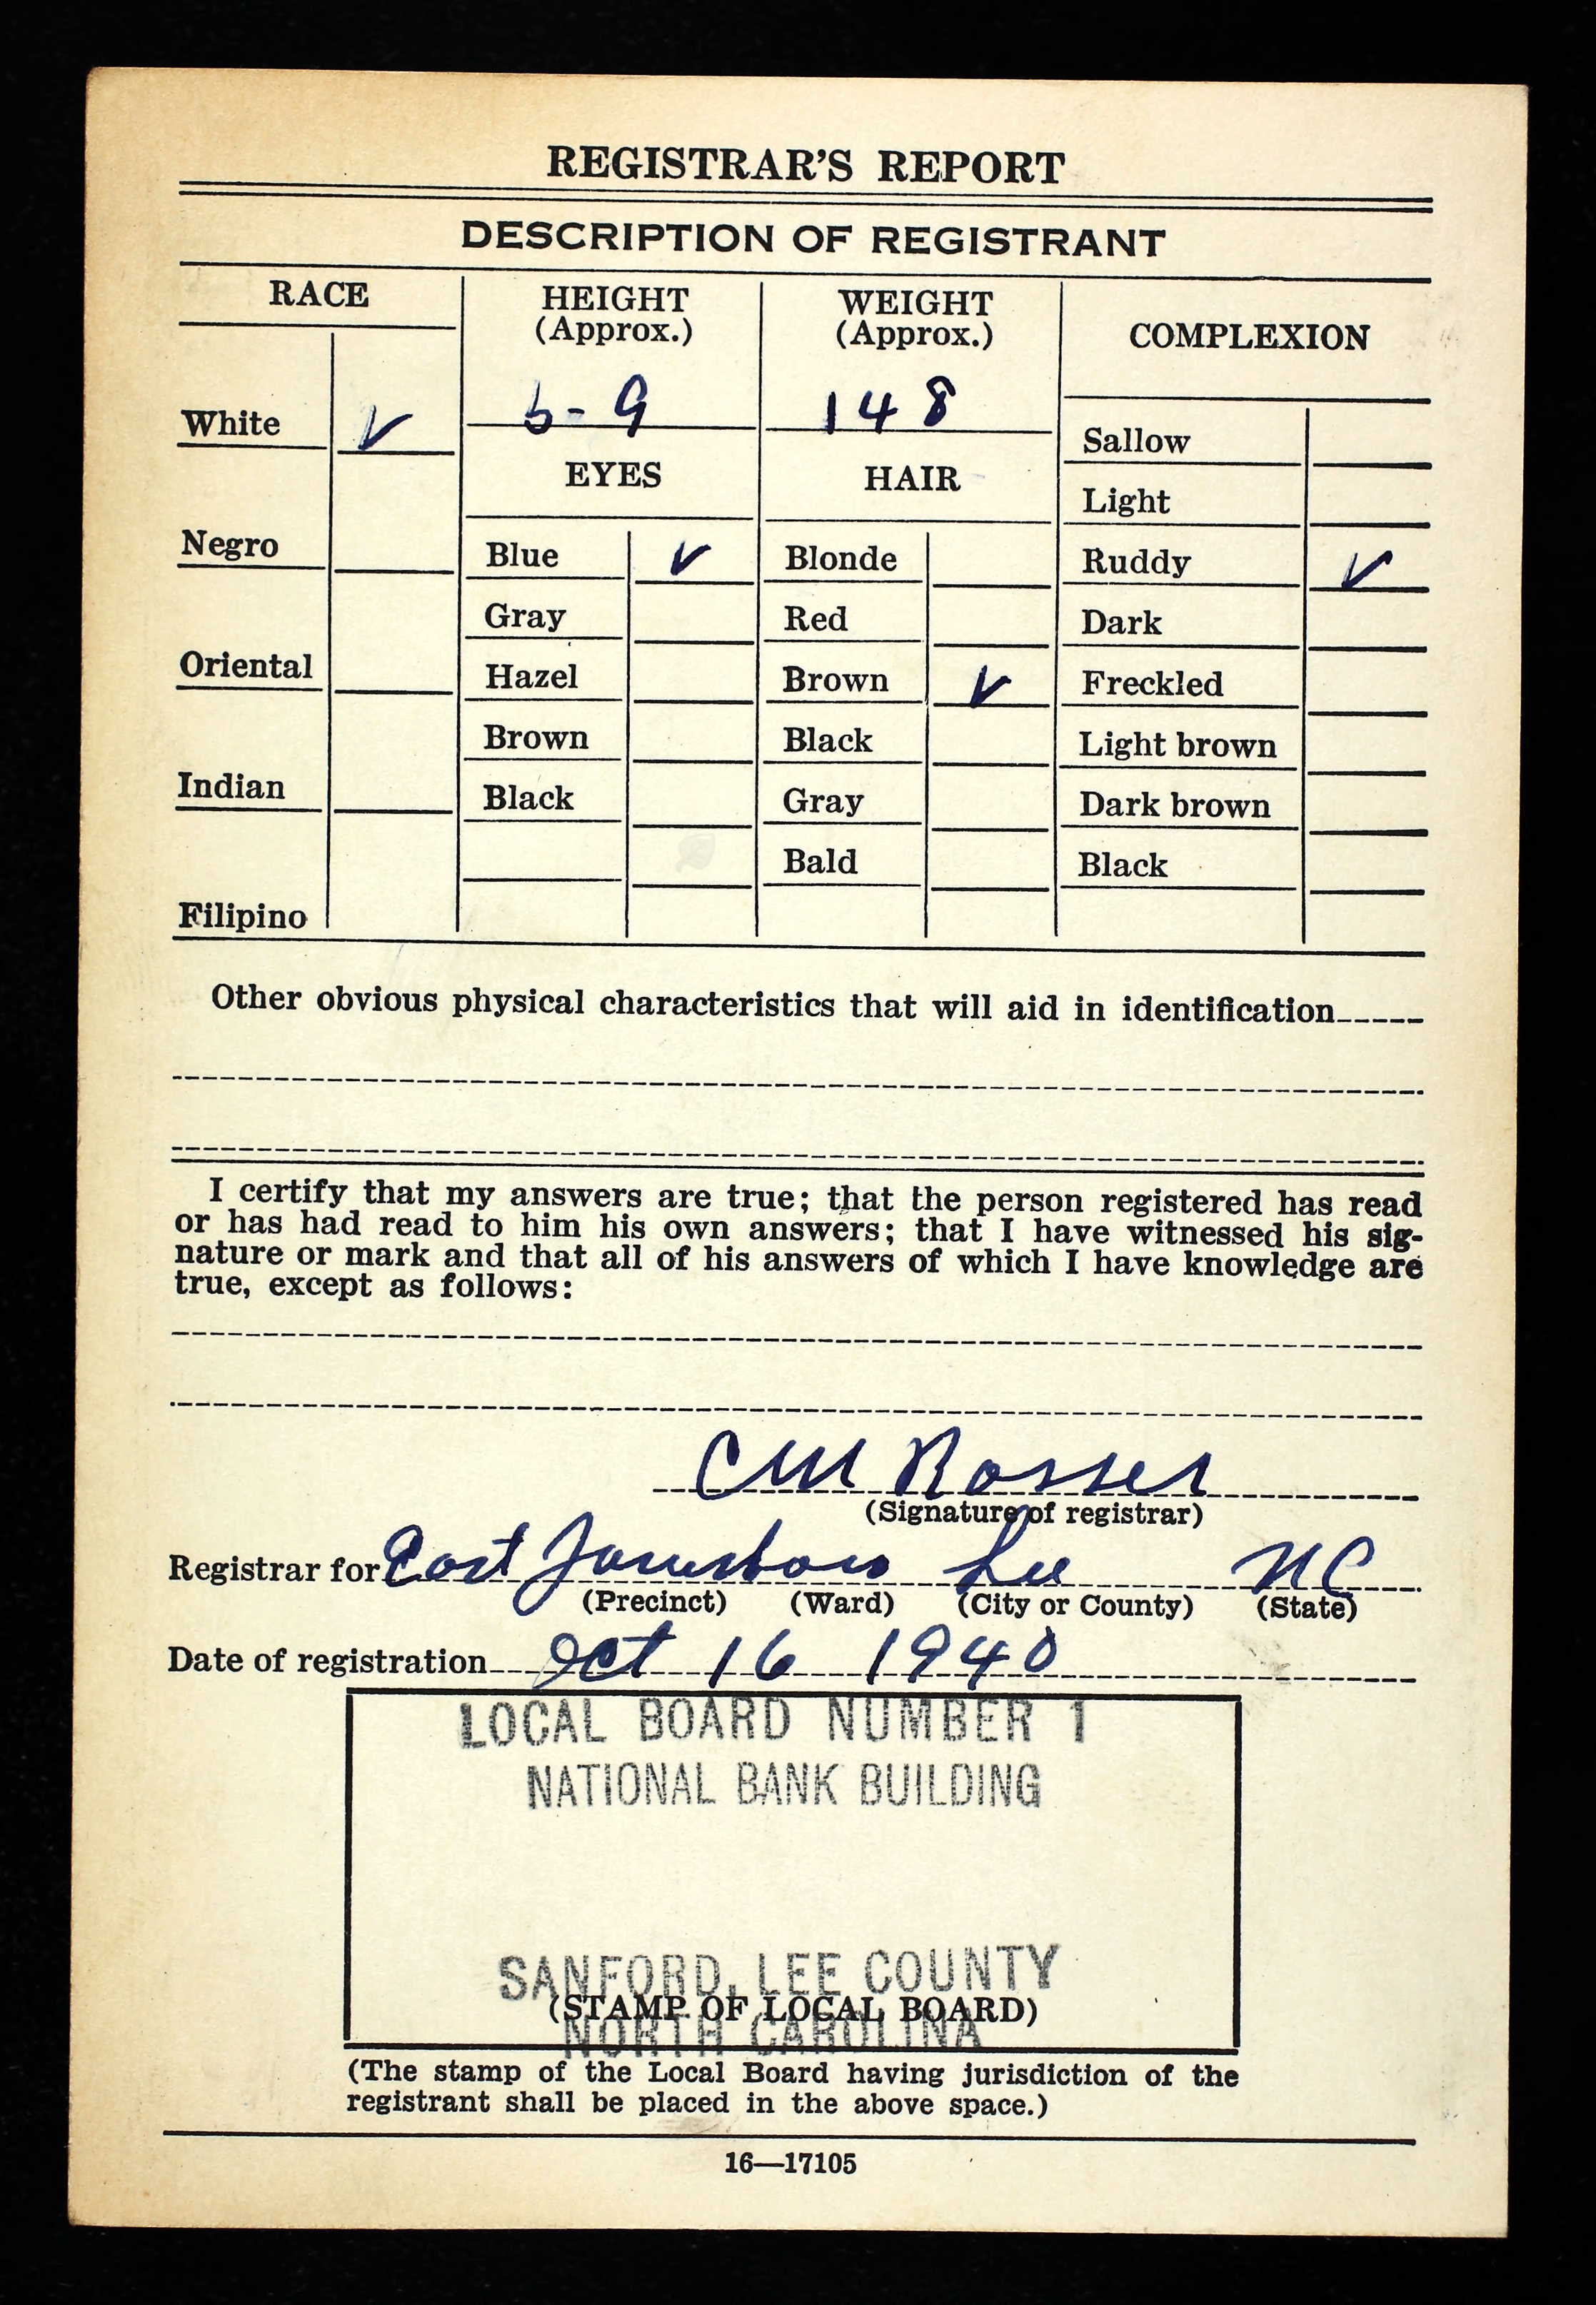 REGISTRAR'S REPORT
DESCRIPTION OF REGISTRANT
RACE
HEIGHT
(Approx.)
WEIGHT
(Approx.)
COMPLEXION
White ✓
5-9
148
Sallow
EYES
HAIR
Light
Negro
Blue ✓
Blonde
Ruddy ✓
Gray
Red
Dark
Oriental
Hazel
Brown ✓
Freckled
Brown
Black
Light brown
Indian
Black
Gray
Dark brown
Bald
Black
Filipino
Other obvious physical characteristics that will aid in identification
I certify that my answers are true; that the person registered has read
or has had read to him his own answers; that I have witnessed his sig-
nature or mark and that all of his answers of which I have knowledge are
true, except as follows:
C M Rosser
(Signature of registrar)
Registrar for East Jonesboro Lee NC
(Precinct) (Ward) (City or County) (State)
Date of registration Oct 16 1940
LOCAL BOARD NUMBER 1
NATIONAL BANK BUILDING
SANFORD, LEE COUNTY
(STAMP OF LOCAL BOARD)
NORTH CAROLINA
(The stamp of the Local Board having jurisdiction of the
registrant shall be placed in the above space.)
16—17105